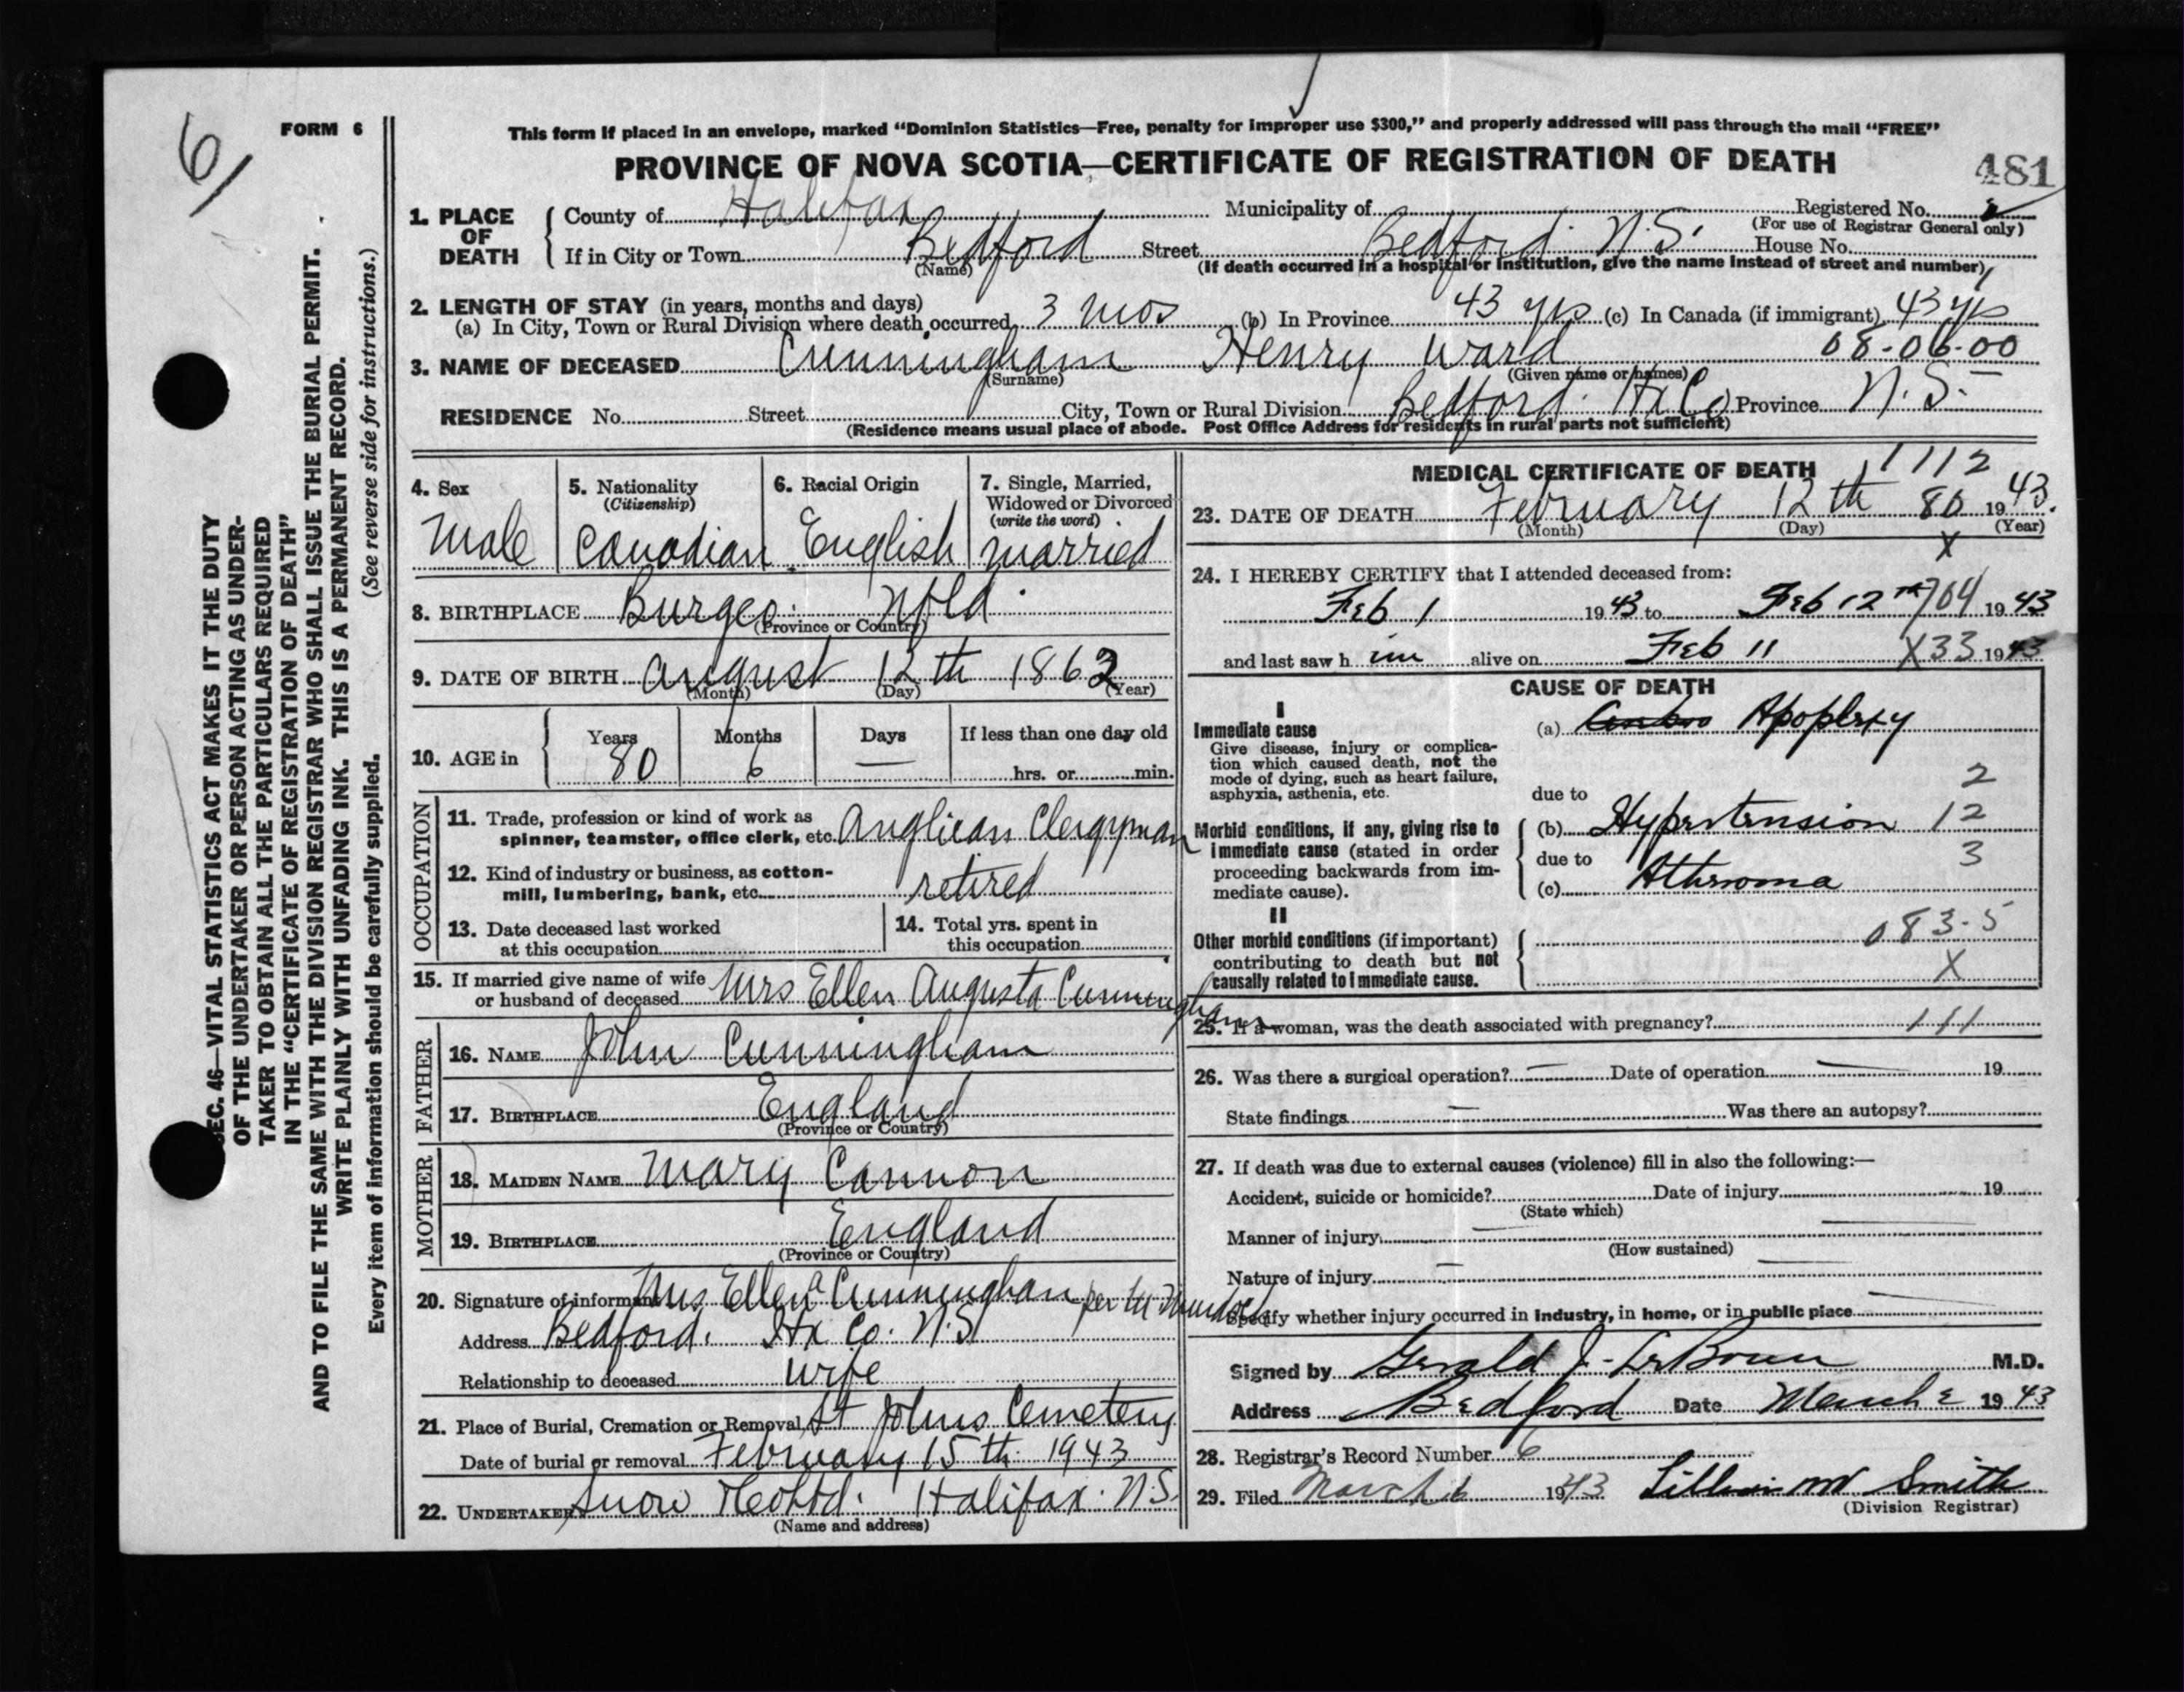 6
FORM 6
This form if placed in an envelope, marked “Dominion Statistics—Free, penalty for improper use $300,” and properly addressed will pass through the mail “FREE”
PROVINCE OF NOVA SCOTIA—CERTIFICATE OF REGISTRATION OF DEATH
481
SEC. 46—VITAL STATISTICS ACT MAKES IT THE DUTY
OF THE UNDERTAKER OR PERSON ACTING AS UNDER-
TAKER TO OBTAIN ALL THE PARTICULARS REQUIRED
IN THE “CERTIFICATE OF REGISTRATION OF DEATH”
AND TO FILE THE SAME WITH THE DIVISION REGISTRAR WHO SHALL ISSUE THE BURIAL PERMIT.
WRITE PLAINLY WITH UNFADING INK. THIS IS A PERMANENT RECORD.
Every item of information should be carefully supplied. (See reverse side for instructions.)
1. PLACE OF DEATH
County of Halifax Municipality of Registered No.
(For use of Registrar General only)
If in City or Town Bedford Street Bedford N.S. House No.
(Name) (If death occurred in a hospital or institution, give the name instead of street and number)
2. LENGTH OF STAY (in years, months and days)
(a) In City, Town or Rural Division where death occurred 3 mos (b) In Province 43 yrs (c) In Canada (if immigrant) 43 yrs
3. NAME OF DECEASED Cunningham Henry Ward 08-06-00
(Surname) (Given name or names)
RESIDENCE No. Street City, Town or Rural Division Bedford. Hx Co Province N.S.
(Residence means usual place of abode. Post Office Address for residents in rural parts not sufficient)
4. Sex
Male
5. Nationality
(Citizenship)
Canadian
6. Racial Origin
English
7. Single, Married,
Widowed or Divorced
(write the word)
married
8. BIRTHPLACE Burgeo. Nfld.
(Province or Country)
9. DATE OF BIRTH August 12th 1862
(Month) (Day) (Year)
10. AGE in
Years Months Days If less than one day old
80 6 — hrs. or min.
OCCUPATION
11. Trade, profession or kind of work as
spinner, teamster, office clerk, etc. Anglican Clergyman
12. Kind of industry or business, as cotton-
mill, lumbering, bank, etc. retired
13. Date deceased last worked
at this occupation
14. Total yrs. spent in
this occupation
15. If married give name of wife
or husband of deceased Mrs Ellen Augusta Cunningham
FATHER
16. NAME John Cunningham
17. BIRTHPLACE England
(Province or Country)
MOTHER
18. MAIDEN NAME Mary Cannon
19. BIRTHPLACE England
(Province or Country)
20. Signature of informant Mrs Ellen a Cunningham per
Address Bedford. Hx Co. N.S
Relationship to deceased wife
21. Place of Burial, Cremation or Removal St Johns Cemetery
Date of burial or removal February 15th 1943
22. UNDERTAKER Snow & Co Ltd. Halifax. N.S.
(Name and address)
MEDICAL CERTIFICATE OF DEATH 1112
23. DATE OF DEATH February 12th 80 1943.
(Month) (Day) (Year)
X
24. I HEREBY CERTIFY that I attended deceased from:
Feb 1 1943 to Feb 12th 704 1943
and last saw h im alive on Feb 11 X33 1943
CAUSE OF DEATH
I
Immediate cause
Give disease, injury or complica-
tion which caused death, not the
mode of dying, such as heart failure,
asphyxia, asthenia, etc.
(a) Apoplexy
2
due to
Morbid conditions, if any, giving rise to
immediate cause (stated in order
proceeding backwards from im-
mediate cause).
(b) Hypertension 12
due to 3
(c) Atheroma
II
Other morbid conditions (if important)
contributing to death but not
causally related to immediate cause.
083-5
X
25. If a woman, was the death associated with pregnancy? 111
26. Was there a surgical operation? — Date of operation — 19
State findings — Was there an autopsy?
27. If death was due to external causes (violence) fill in also the following:—
Accident, suicide or homicide? Date of injury 19
(State which)
Manner of injury —
(How sustained)
Nature of injury —
Specify whether injury occurred in industry, in home, or in public place
Signed by Gerald J. LeBrun M.D.
Address Bedford Date March 2 1943
28. Registrar's Record Number 6
29. Filed March 6 1943 Lillian M Smith
(Division Registrar)